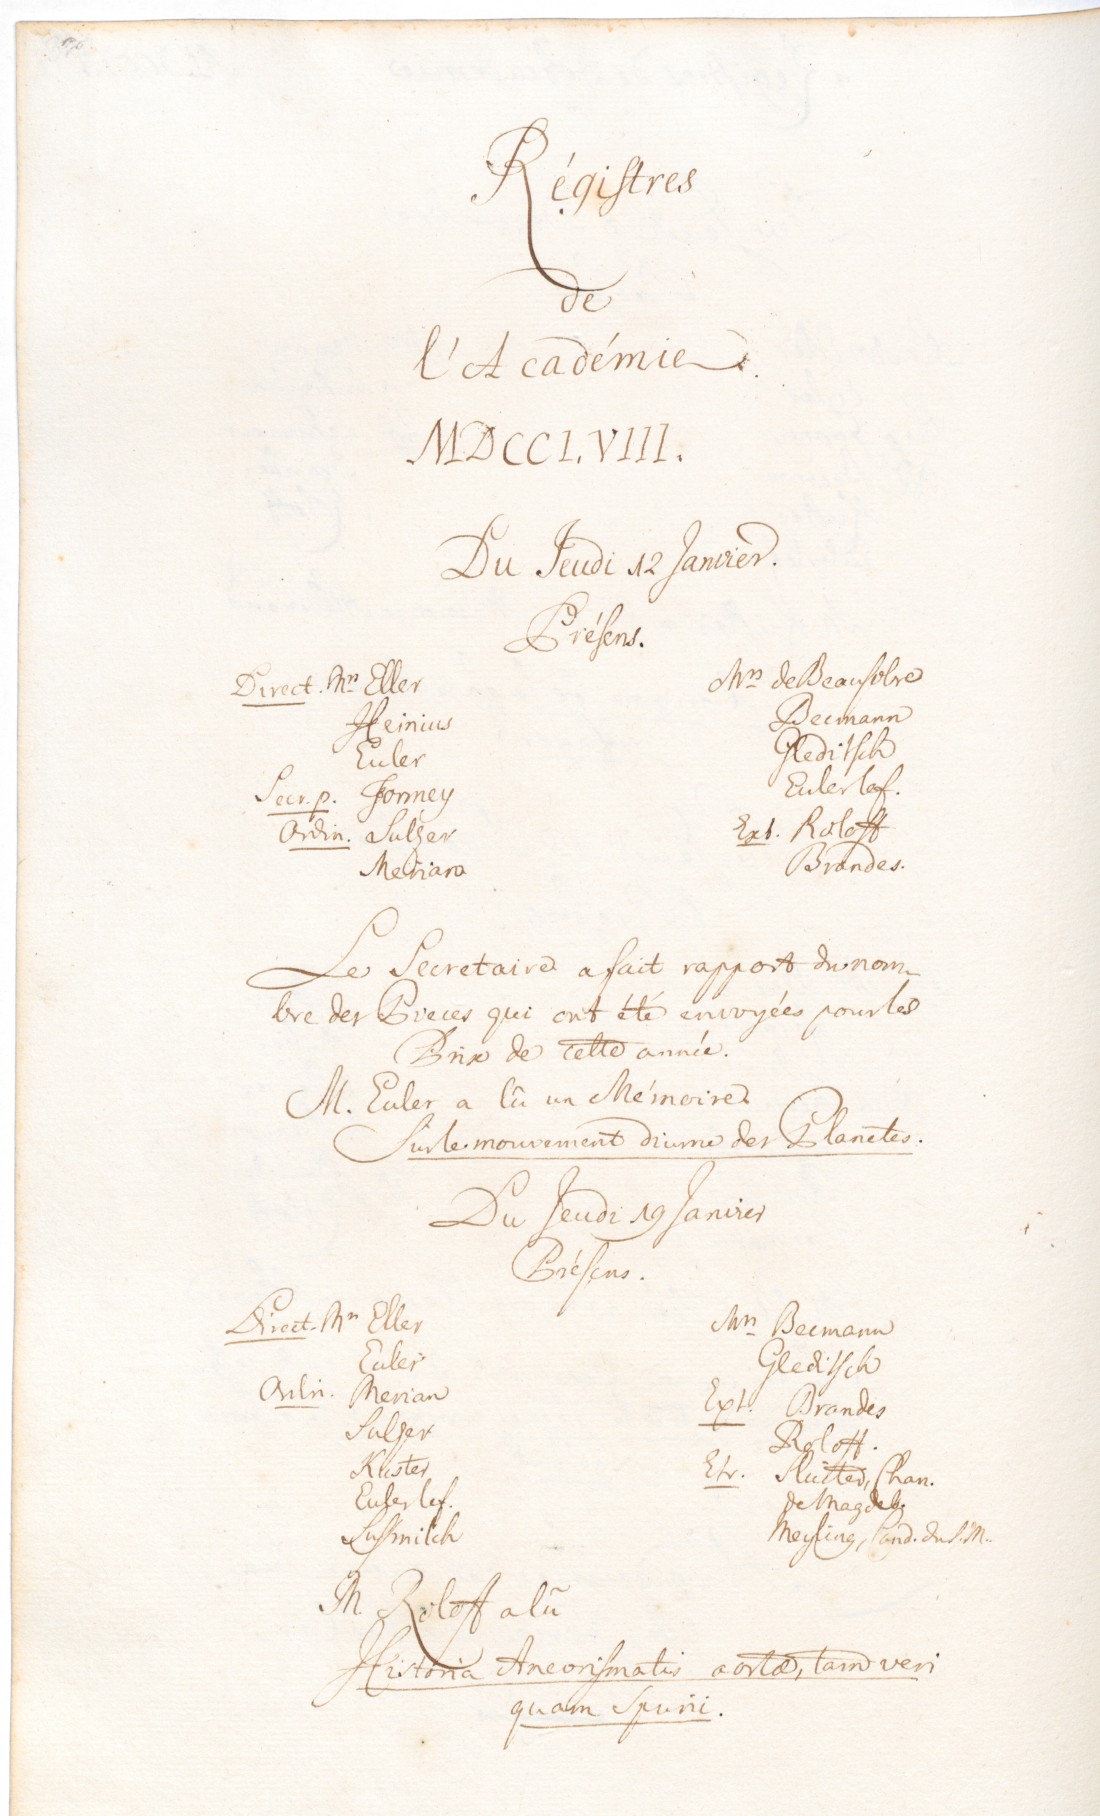 Régistres
de
l'Académie.
MDCCLVIII.
Du Jeudi 12 Janvier.
Présens.
Direct. Mrs Eller
Heinius
Euler
Secr. p. Formey
Ordin. Sulzer
Merian
Mrs de Beausobre
Becmann
Gleditsch
Euler le f.
Ext. Roloff
Brandes.
Le Secretaire a fait rapport du nom-
bre des Pieces qui ont été envoyées pour les
Prix de cette année.
M. Euler a lû un Mémoire
Sur le mouvement diurne des Planetes.
Du Jeudi 19 Janvier
Présens.
Direct. Mrs Eller
Euler
Ordin. Merian
Sulzer
Kuster
Euler le f.
Sussmilch
Mrs Becmann
Gleditsch
Ext. Brandes
Roloff.
Etr. Chan.
de Magdeb.
Meyling, du
M Roloff a lû
Historia Aneorismatis aortæ, tam veri
quam spurii.